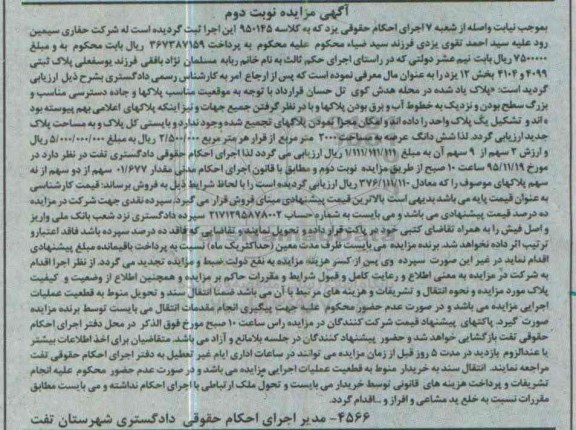 آگهی مزایده نوبت دوم
بموجب نیابت واصله از شعبه ۷ اجرای احکام حقوقی یزد که به کلاسه ۹۵۰۱۴۵ این اجرا ثبت گردیده است له شرکت حفاری سیمین
رود علیه سید احمد تقوی یزدی فرزند سید ضیاء محکوم علیه محکوم به پرداخت ۳۶۷۳۸۷۱۵۹ ریال بابت محکوم به و مبلغ
۷۵۰۰۰۰۰ ریال بابت نیم عشر دولتی که در راستای اجرای حکم ثالث به نام خانم ربابه مسلمان نژاد بافقی فرزند یوسفعلی پلاک ثبتی
۴۰۹۹ و ۴۱۰۴ بخش ۱۲ یزد را به عنوان مال معرفی نموده است که پس از ارجاع امر به کارشناس رسمی دادگستری بشرح ذیل ارزیابی
گردیده است: «پلاک یاد شده در محله هدش کوی تل حسان قرارداد با توجه به موقعیت مناسب پلاکها و جاده دسترسی مناسب و
بزرگ سطح بودن و نزدیک به خطوط آب و برق بودن پلاکها و با در نظر گرفتن جمیع جهات و نیز اینکه پلاکهای اعلامی بهم پیوسته بود
ه اند و تشکیل یک پلاک واحد را داده اند و امکان مجزا نمودن پلاکهای تجمیع شده وجود ندارد و بایستی کل پلاک و به مساحت پلاک
جدید ارزیابی گردد. لذا شش دانگ عرصه به مساحت ۲۰۰۰ متر مربع از قرار هر متر مربع ۲/۵۰۰/۰۰۰ ریال به مبلغ ۵/۰۰۰/۰۰۰/۰۰۰ ریال
و ارزش ۲ سهم از ۹ سهم آن به مبلغ ۱/۱۱۱/۱۱۱/۱۱۱ ریال ارزیابی می گردد لذا اجرای احکام حقوقی دادگستری تفت در نظر دارد در
مورخ ۹۵/۱۱/۱۹ ساعت ۱۰ صبح از طریق مزایده نوبت دوم و مطابق با قانون اجرای احکام مدنی مقدار ۰/۶۷۷ سهم از دو سهم از نه
سهم پلاکهای موصوف را که معادل ۳۷۶/۱۱۱/۱۱۰ ریال ارزیابی گردیده است را با لحاظ شرایط ذیل به فروش برساند: قیمت کارشناسی
به عنوان قیمت پایه می باشد بدیهی است بالاترین قیمت پیشنهادی مبنای فروش قرار می گیرد. سپرده نقدی جهت شرکت در مزایده
ده درصد قیمت پیشنهادی می باشد و می بایست به شماره حساب ۲۱۷۱۲۹۵۸۷۸۰۰۲ سپرده دادگستری نزد شعب بانک ملی واریز
و اصل فیش را به همراه تقاضای کتبی خود در پاکت قرار داده و تحویل نمایند و تقاضایی که فاقد ده درصد سپرده باشد فاقد اعتبار و
ترتیب اثر داده نخواهد شد. برنده مزایده می بایست ظرف مدت معین (حداکثر یک ماه) نسبت به پرداخت باقیمانده مبلغ پیشنهادی
اقدام نماید در غیر این صورت سپرده وی پس از کسر هزینه مزایده به نفع دولت ضبط و مزایده تجدید می گردد. از نظر اجرا اقدام
به شرکت در مزایده به معنی اطلاع و رعایت کامل و قبول شرایط و مقررات حاکم بر مزایده و همچنین اطلاع از وضعیت و کیفیت
پلاک مورد مزایده و نحوه انتقال و تشریفات و هزینه های مرتبط با آن می باشد ضمنا انتقال سند و تحویل منوط به قطعیت عملیات
اجرایی مزایده می باشد و در صورت عدم حضور محکوم علیه جهت پیگیری انجام مقدمات انتقال می بایست توسط برنده مزایده
صورت گیرد. پاکتهای پیشنهاد قیمت شرکت کنندگان در مزایده راس ساعت ۱۰ صبح مورخ فوق الذکر در محل دفتر اجرای احکام
حقوقی تفت بازگشایی خواهد شد و حضور پیشنهاد کنندگان در جلسه بلامانع و آزاد می باشد. متقاضیان برای اخذ اطلاعات بیشتر
یا عندالزوم بازدید در مدت ۵ روز قبل از زمان مزایده می توانند در ساعات اداری ایام غیر تعطیل به دفتر اجرای احکام حقوقی تفت
مراجعه نمایند. انتقال سند به خریدار منوط به قطعیت عملیات اجرایی مزایده می باشد و در صورت عدم حضور محکوم علیه انجام
تشریفات و پرداخت هزینه های قانونی توسط خریدار می بایست و تحول ملک ارتباطی با اجرای احکام نداشته و می بایست مطابق
مقررات نسبت به خلع ید مشاعی و افراز و ...اقدام گردد.
۴۵۶۶- مدیر اجرای احکام حقوقی دادگستری شهرستان تفت